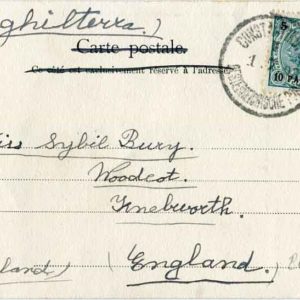 ghilterra.)
Carte postale.
Ce côté est exclusivement réservé à l'adresse
CONST
10 PA
iss Sybil Bury.
Woodcot.
Knebworth.
land) England.